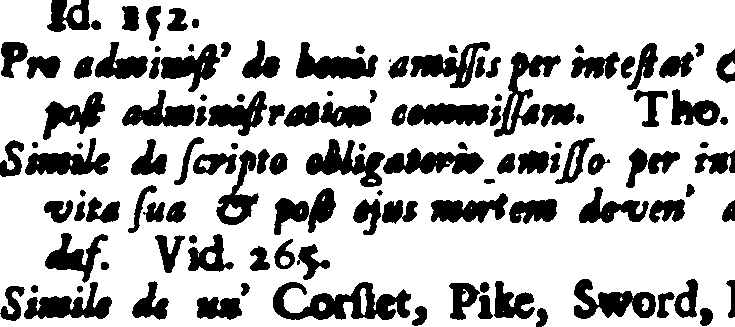 Id. 152.
Pro administ' de bonis amissis per intestat' &
post administration' commissam. Tho.
Simile de scripto obligatorio amisso per int
vita sua & post ejus mortem deven' a
def. Vid. 265.
Simile de un' Corslet, Pike, Sword,